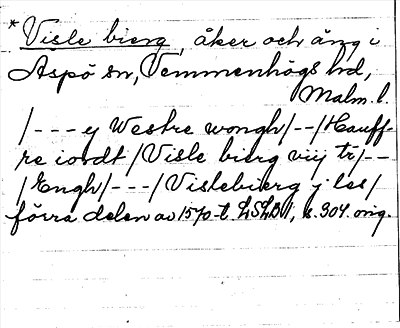 * Visle bierg, åker och äng i
Aspö sn, Vemmenhögs hd,
Malm. l.
/--- y Westre wongh/--/Hauff-
re iordt/Visle bierg viij tr/--
/Engh/---/Vislebierg j les/
förra delen av 1570-t. LSLB I, s. 304. orig.